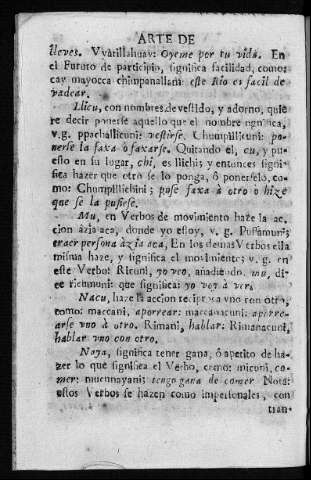 ARTE DE
lleves. Vyarillahuav: Oyeme por tu vida. En
el Futuro de participio, significa facilidad, como:
cay mayocca chimpanallam: este Rio es facil de
vadear.
Llicu, con nombres de vestido, y adorno, quie
re decir ponerse aquello que el nombre significa,
v.g. ppachallicuni: vestirse. Chumpillicuni: po-
nerse la faxa ò faxarse. Quitando el, cu, y pu-
esto en su lugar, chi, es llichi; y entonces signi-
fica hazer que otro se lo ponga, ò ponerselo, co-
mo: Chumpillichini; pose faxa à otro ò hize
que se la pusiese.
Mu, en Verbos de movimiento haze la ac,
cion àzia acà, donde yo estoy, v. g. Pussamuni;
traer persona àzia aca, En los demas Verbos ella
misma haze, y significa el movimiento; v. g. en
este Verbo: Ricuni, yo veo, añadiendo, mu, di-
ce ricumuni: que significa: yo voy à ver.
Nacu, haze la accion reciproca vno con otro,
como: maccani, aporrear: maccanacuni: aporre-
arse vno à otro. Rimani, hablar: Rimanacuni,
hablar vno con otro.
Naya, significa tener gana, ò apetito de ha-
zer lo que significa el Verbo, como: micuni, co-
mer: micunayani: tengo gana de comer Nota:
estos Verbos se hazen como impersonales, con
tran-